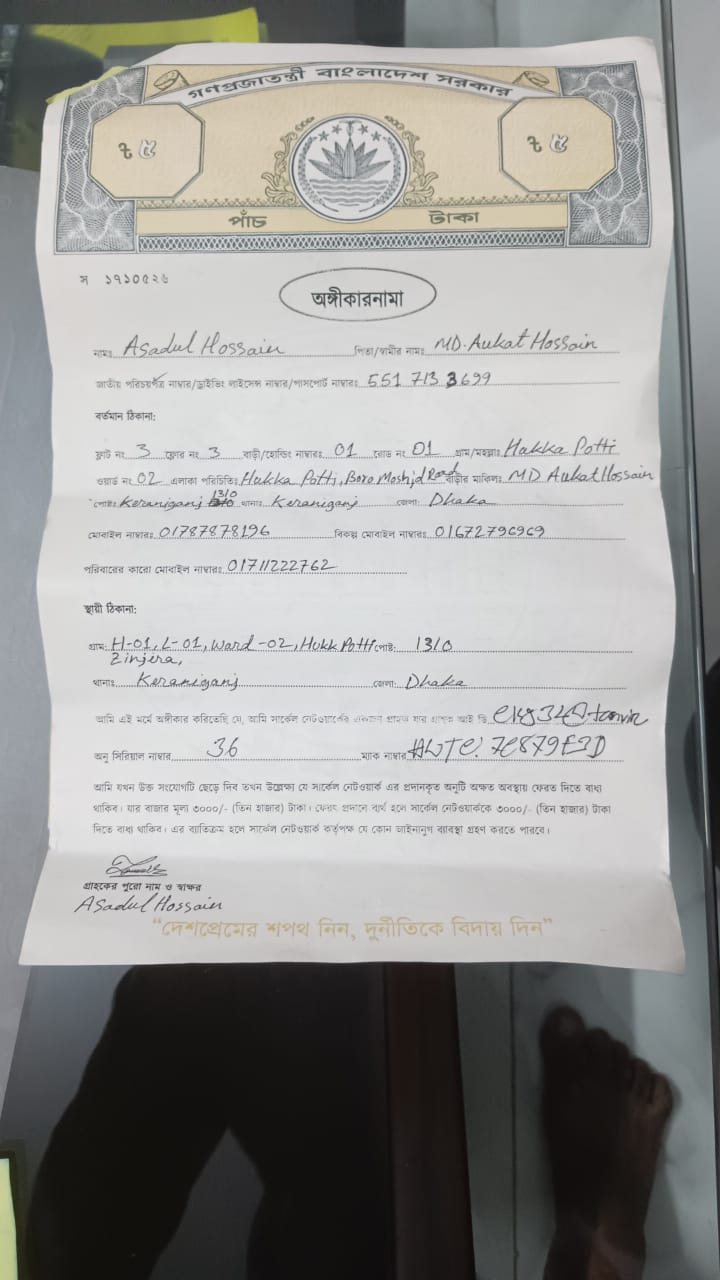 গণপ্রজাতন্ত্রী বাংলাদেশ সরকার
৳ ৫
৳ ৫
পাঁচ টাকা
স ১৭১০৫২৬
অঙ্গীকারনামা
নামঃ Asadul Hossain পিতা/স্বামীর নামঃ MD. Aukat Hossain
জাতীয় পরিচয়পত্র নাম্বার/ড্রাইভিং লাইসেন্স নাম্বার/পাসপোর্ট নাম্বারঃ 551 713 3699
বর্তমান ঠিকানা:
ফ্লাট নং 3 ফ্লোর নং 3 বাড়ী/হোল্ডিং নাম্বারঃ 01 রোড নং 01 গ্রাম/মহল্লাঃ Hakka Potti
ওয়ার্ড নং 02 এলাকা পরিচিতিঃ Hukka Potti, Boro Moshjd Road বাড়ীর মালিকঃ MD Aukat Hossain
পোষ্টঃ Keraniganj 1310 থানাঃ Keraniganj জেলা: Dhaka
মোবাইল নাম্বারঃ 01787878196 বিকল্প মোবাইল নাম্বারঃ 01672796969
পরিবারের কারো মোবাইল নাম্বারঃ 01711222762
স্থায়ী ঠিকানা:
গ্রাম: H-01, L-01, Ward-02, Hukk Potti পোষ্ট: 1310
Zinjera,
থানাঃ Keraniganj জেলা: Dhaka
আমি এই মর্মে অঙ্গীকার করিতেছি যে, আমি সার্কেল নেটওয়ার্কের একজন গ্রাহক যার গ্রাহক আই ডি
অনু সিরিয়াল নাম্বার 36 ম্যাক নাম্বার
আমি যখন উক্ত সংযোগটি ছেড়ে দিব তখন উল্লেক্ষ্য যে সার্কেল নেটওয়ার্ক এর প্রদানকৃত অনুটি অক্ষত অবস্থায় ফেরত দিতে বাধ্য
থাকিব। যার বাজার মূল্য ৩০০০/- (তিন হাজার) টাকা। ফেরৎ প্রদানে ব্যর্থ হলে সার্কেল নেটওয়ার্ককে ৩০০০/- (তিন হাজার) টাকা
দিতে বাধ্য থাকিব। এর ব্যতিক্রম হলে সার্কেল নেটওয়ার্ক কর্তৃপক্ষ যে কোন আইনানুগ ব্যবস্থা গ্রহণ করতে পারবে।
গ্রাহকের পুরো নাম ও স্বাক্ষর
Asadul Hossain
“দেশপ্রেমের শপথ নিন, দুর্নীতিকে বিদায় দিন”